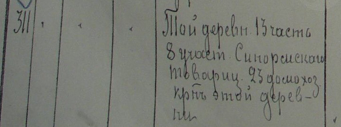 311 " " " Той деревн 13 часть
8 участ. Сиποремскаго
товарищ. 23 домохоз
крт этой дерев-
ни